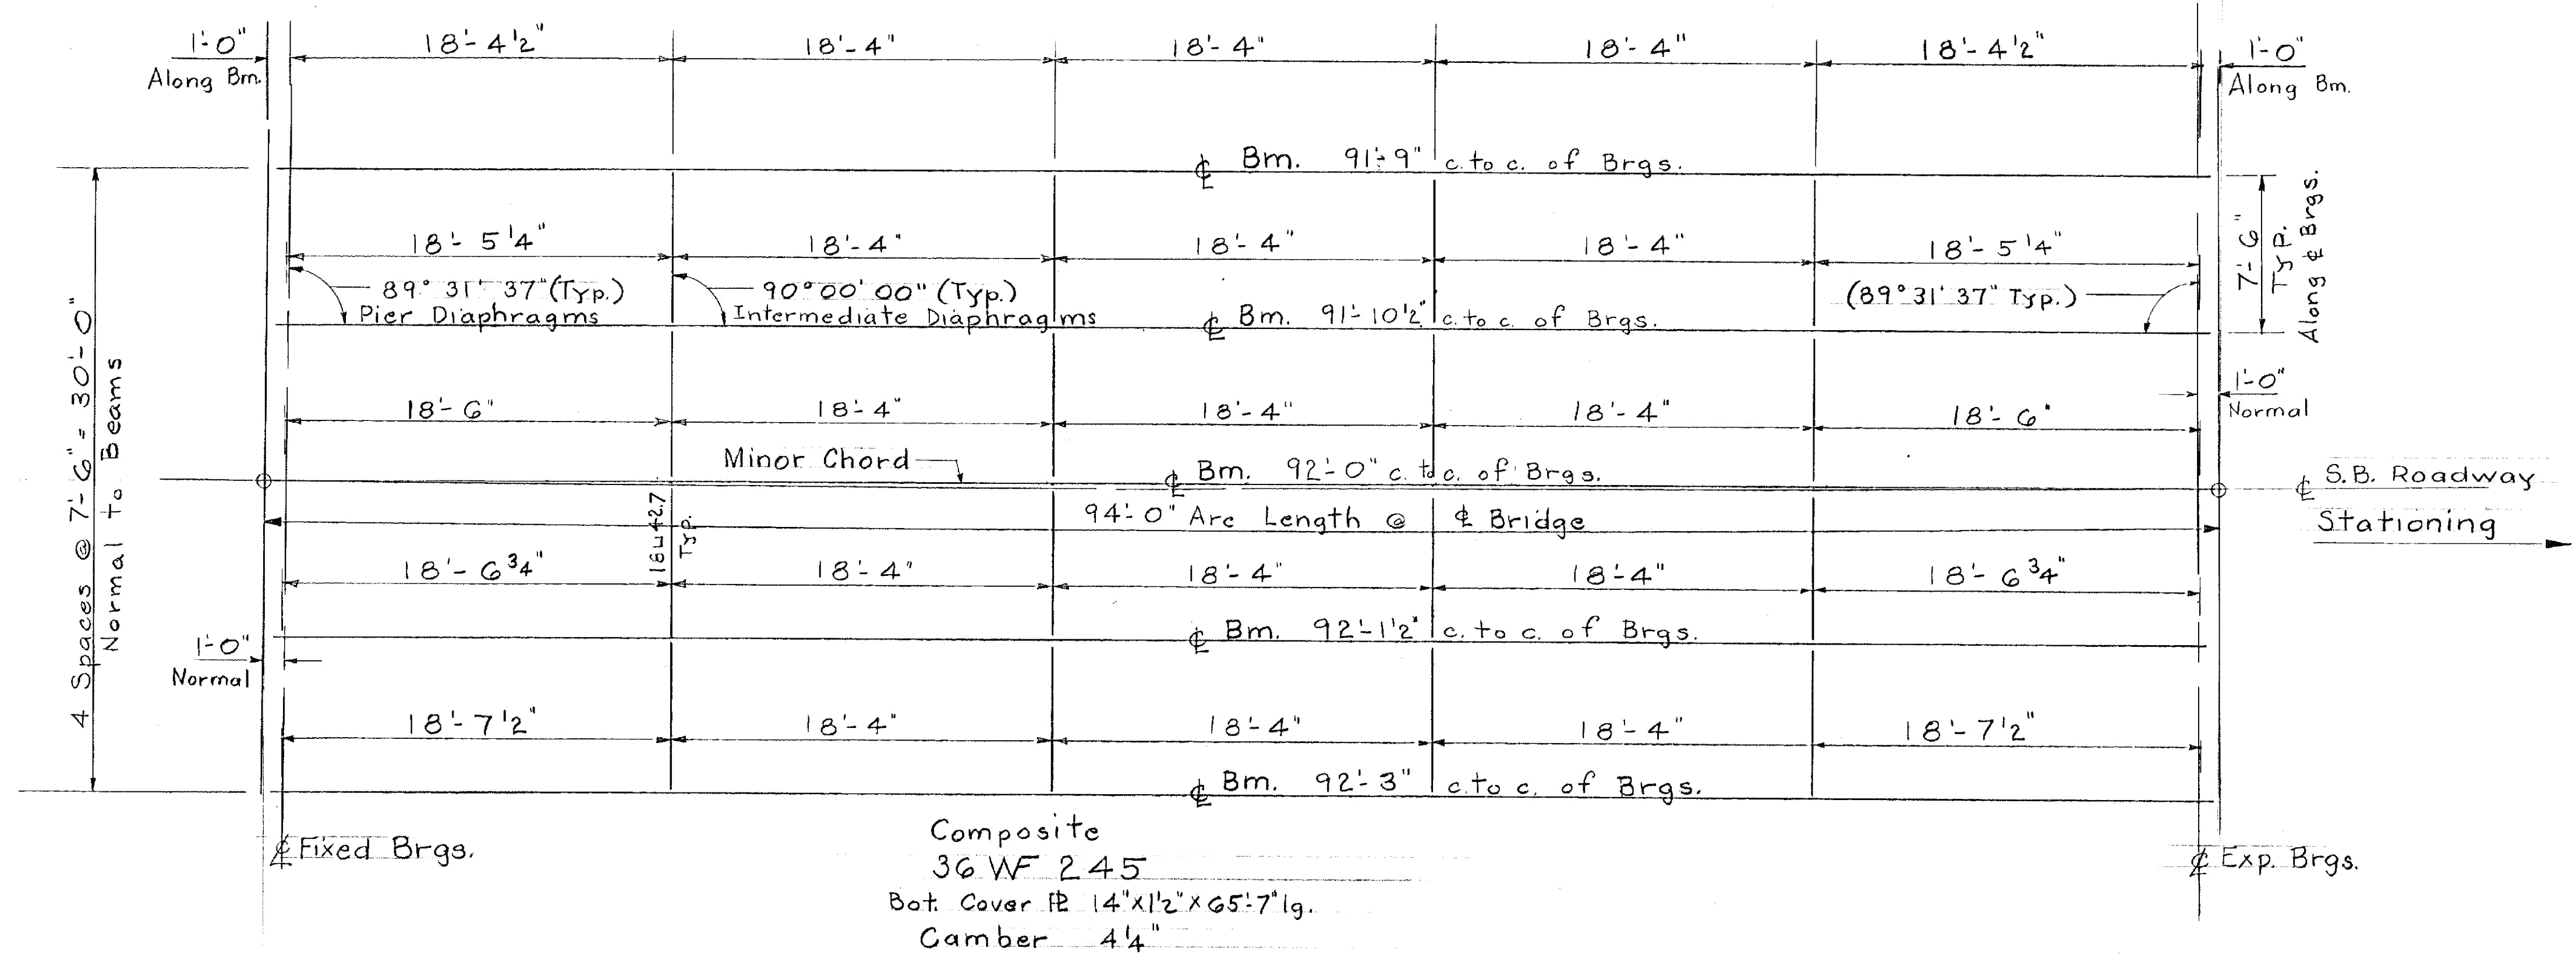 1'-0"
Along Bm.
18'-4 1/2"
18'-4"
18'-4"
18'-4"
18'-4 1/2"
1'-0"
Along Bm.
℄ Bm. 91'-9" c. to c. of Brgs.
18'-5 1/4"
18'-4"
18'-4"
18'-4"
18'-5 1/4"
7'-6"
Typ.
Along ℄ Brgs.
89° 31' 37" (Typ.)
Pier Diaphragms
90° 00' 00" (Typ.)
Intermediate Diaphragms
(89° 31' 37" Typ.)
℄ Bm. 91'-10 1/2" c. to c. of Brgs.
4 Spaces @ 7'-6" = 30'-0"
Normal to Beams
18'-6"
18'-4"
18'-4"
18'-4"
18'-6"
1'-0"
Normal
Minor Chord
℄ Bm. 92'-0" c. to c. of Brgs.
℄ S.B. Roadway
Stationing
18⊔42.7
Typ.
94'-0" Arc Length @ ℄ Bridge
18'-6 3/4"
18'-4"
18'-4"
18'-4"
18'-6 3/4"
℄ Bm. 92'-1 1/2" c. to c. of Brgs.
1'-0"
Normal
18'-7 1/2"
18'-4"
18'-4"
18'-4"
18'-7 1/2"
℄ Bm. 92'-3" c. to c. of Brgs.
℄ Fixed Brgs.
℄ Exp. Brgs.
Composite
36 WF 245
Bot. Cover ℄ 14"x1 1/2"x65'-7" lg.
Camber 4 1/4"